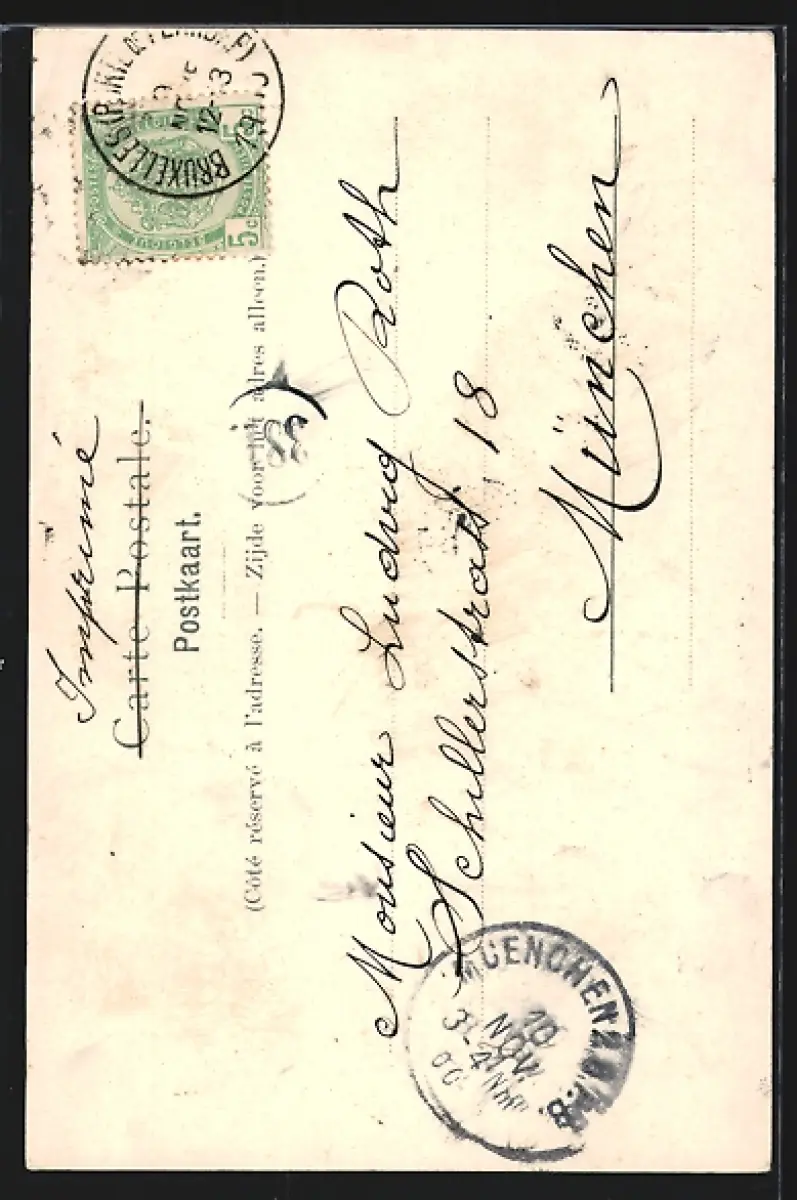 Imprimé
Carte Postale.
Postkaart.
(Côté réservé à l'adresse. — Zijde voor het adres alleen.)
Monsieur Ludvig Roth
Schillerstrass 18
München
BRUXELLES
12-3
5c 5c
MUENCHEN 2. B.P.B.
10
NOV.
3-4 Nm
00